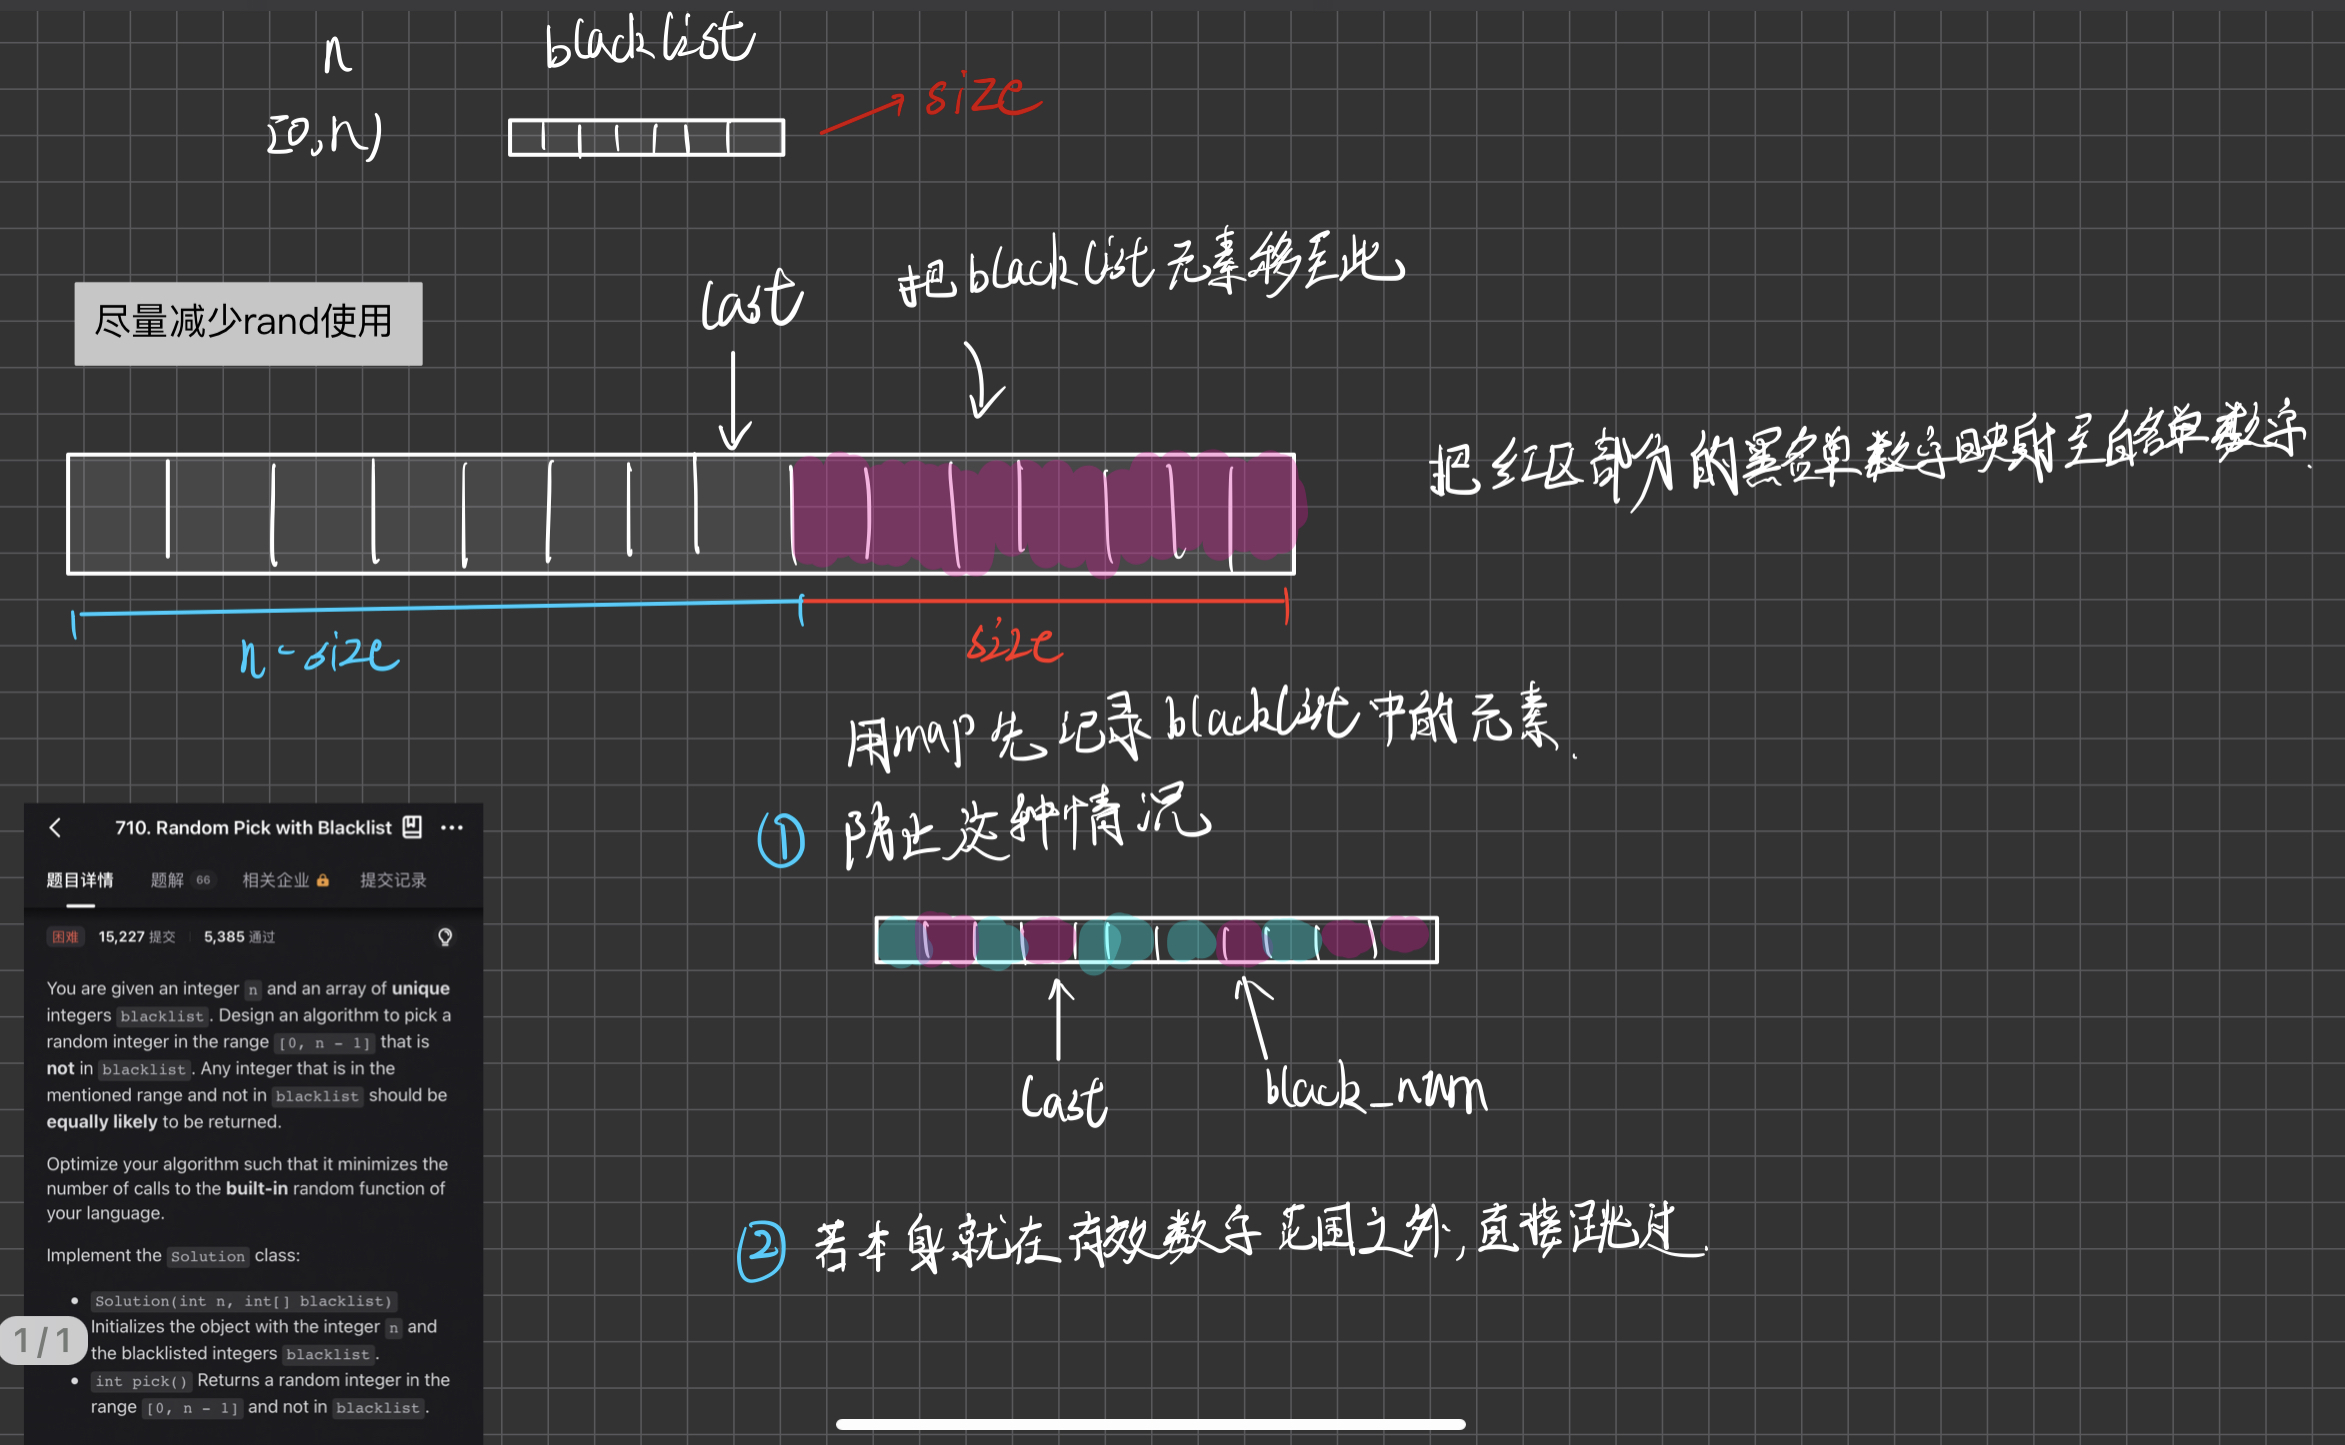 n
blacklist
size
[0,n)
把blacklist元素移至此
last
尽量减少rand使用
把红区部分的黑名单数字映射至白名单数字.
n-size
size
用map先记录blacklist中的元素.
① 防止这种情况
last
black_num
② 若本身就在有效数字范围之外,直接跳过.
710. Random Pick with Blacklist
题目详情 题解 66 相关企业 提交记录
困难 15,227 提交 5,385 通过
You are given an integer n and an array of unique
integers blacklist. Design an algorithm to pick a
random integer in the range [0, n - 1] that is
not in blacklist. Any integer that is in the
mentioned range and not in blacklist should be
equally likely to be returned.
Optimize your algorithm such that it minimizes the
number of calls to the built-in random function of
your language.
Implement the Solution class:
• Solution(int n, int[] blacklist)
Initializes the object with the integer n and
the blacklisted integers blacklist.
• int pick() Returns a random integer in the
range [0, n - 1] and not in blacklist.
1/1